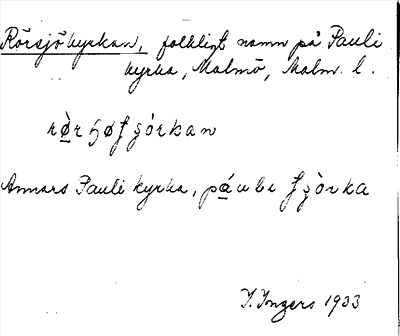 Rörsjökyrkan, folkligt namn på Pauli
kyrka, Malmö, Malm. l.
Annars Pauli kyrka,
I. Ingers 1933